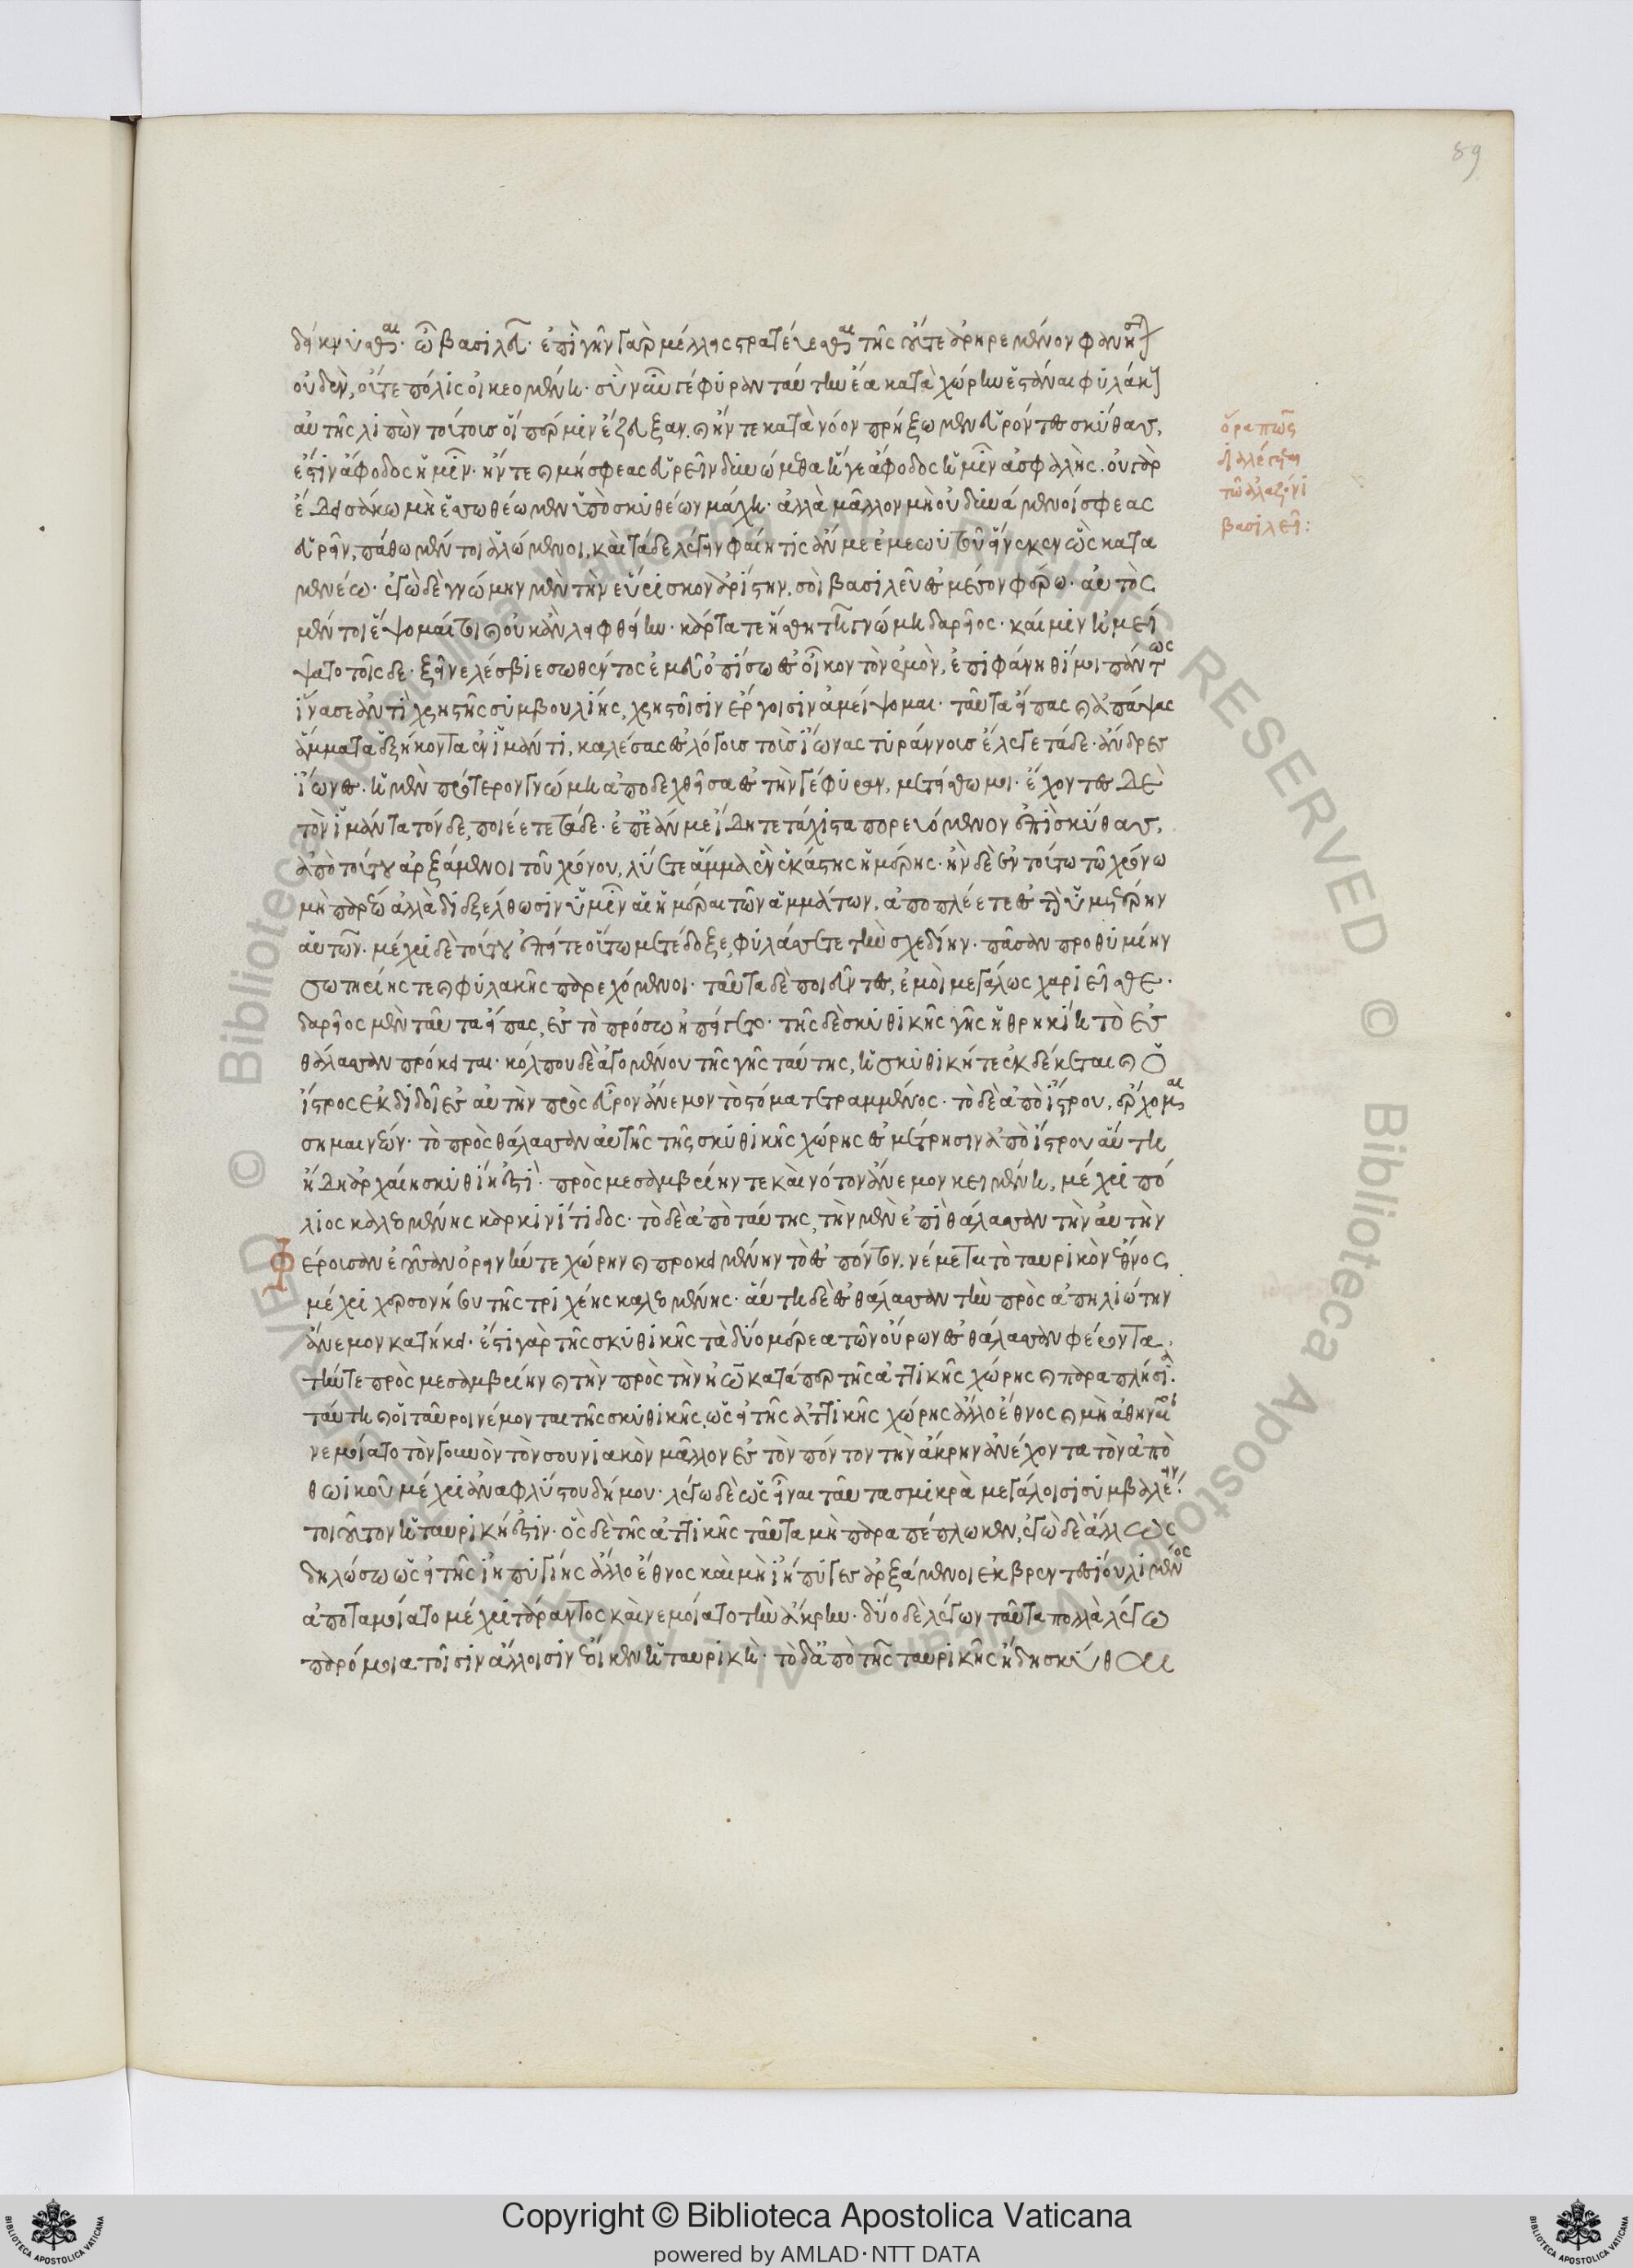 89
δείκνυσθαι. ὦ βασιλεῦ. ἐπὶ γῆν γὰρ μέλλεις στρατεύεσθαι τῆς οὔτε ἀρηρομένον φανήσεται
οὐδὲν, οὔτε πόλις οἰκεομένη. σὺ νῦν γέφυραν ταύτην ἔα κατὰ χώρην ἑστάναι φύλακας
αὐτῆς λιπὼν τούτους οἵπερ μιν ἔζευξαν. καὶ ἤν τε κατὰ νόον πρήξωμεν εὑρόντες σκύθας,
ἔστιν ἄφοδος ἡμῖν. ἤν τε καὶ μή σφεας εὑρεῖν δυνώμεθα ἥ γε ἄφοδος ἡμῖν ἀσφαλής. οὐ γὰρ
ἔδεισά κω μὴ ἑσσωθέωμεν ὑπὸ σκυθέων μάχη. ἀλλὰ μᾶλλον μὴ οὐ δυνάμενοί σφεας
εὑρεῖν, πάθωμέν τι ἀλώμενοι, καὶ τάδε λέγειν φαίη τίς ἄν με ἐμεωυτοῦ εἵνεκεν ὡς κατα
μενέω. ἐγὼ δὲ γνώμην μὲν τὴν εὕρισκον ἀρίστην. σοὶ βασιλεῦ ἐς μέσον φέρω. αὐτὸς
μέντοι ἕψομαί τοι καὶ οὐκ ἂν λειφθείην. κάρτα τε ἥσθη τῆ γνώμη δαρεῖος. καί μιν ἠμεί
ψατο τοῖσδε. ξεῖνε λέσβιε σωθέντος ἐμεῦ ὀπίσω ἐς οἶκον τὸν ἐμὸν, ἐπιφάνηθί μοι πάντως
ἵνα σε ἀντὶ χρηστῆς συμβουλίης, χρηστοῖσιν ἔργοισιν ἀμείψομαι. ταῦτα εἴπας καὶ ἀπάψας
ἅμματα ἑξήκοντα ἐν ἱμάντι, καλέσας ἐς λόγους τοὺς ἰώνας τυράννους ἔλεγε τάδε. ἄνδρες
ἴωνες. ἡ μὲν πρότερον γνώμη ἀποδεχθεῖσα ἐς τὴν γέφυραν, μετείσθω μοι. ἔχοντες δὲ
τὸν ἱμάντα τόνδε, ποιέετε τάδε. ἐπεὰν με ἴδητε τάχιστα πορευόμενον ἐπὶ σκύθας,
ἀπὸ τούτου ἀρξάμενοι τοῦ χρόνου, λύετε ἅμμα ἓν ἑκάστης ἡμέρης. ἢν δὲ ἐν τούτω τῶ χρόνω
μὴ παρέω ἀλλὰ διεξέλθωσιν ὑμῖν αἱ ἡμέραι τῶν ἁμμάτων. ἀποπλέετε ἐς τὴν ὑμετέρην
αὐτῶν. μέχρι δὲ τούτου ἐπείτε οὕτω μετέδοξε, φυλάσσετε τὴν σχεδίην. πᾶσαν προθυμίην
σωτηρίης τε καὶ φυλακῆς παρεχόμενοι. ταῦτα δὲ ποιεῦντες, ἐμοὶ μεγάλως χαριεῖσθε.
δαρεῖος μὲν ταῦτα εἴπας, ἐς τὸ πρόσω ἠπείγετο. τῆς δὲ σκυθικῆς γῆς ἡ θρηκίη τὸ ἐς
θάλασσαν πρόκειται. κόλπου δὲ ἀγομένου τῆς γῆς ταύτης, ἡ σκυθική τε ἐκδέκεται καὶ ὁ
ἴστρος ἐκδιδοῖ ἐς αὐτὴν πρὸς εὖρον ἄνεμον τὸ στόμα τετραμμένος. τὸ δὲ ἀπὸ ἴστρου, ἔρχομαι
σημαινέων. τὸ πρὸς θάλασσαν αὐτῆς τῆς σκυθικῆς χώρης ἐς μέτρησιν ἀπὸ ἴστρου αὕτη
ἤδη ἀρχαίη σκυθίη ἐστὶ. πρὸς μεσαμβρίην τε καὶ νότον ἄνεμον κειμένη, μέχρι πό
λιος καλεομένης καρκινίτιδος. τὸ δὲ ἀπὸ ταύτης, τὴν μὲν ἐπὶ θάλασσαν τὴν αὐτὴν
φέρουσαν ἐοῦσαν ὀρεινήν τε χώρην καὶ προκειμένην τὸ ἐς πόντον. νέμεται τὸ ταυρικὸν ἔθνος
μέχρι χερσονήσου τῆς τρηχέης καλεομένης. αὕτη δὲ ἐς θάλασσαν τὴν πρὸς ἀπηλιώτην
ἄνεμον κατήκει. ἔστι γὰρ τῆς σκυθικῆς τὰ δύο μέρεα τῶν οὔρων ἐς θάλασσαν φέροντα.
τήν τε πρὸς μεσαμβρίην καὶ τὴν πρὸς τὴν ἠῶ κατάπερ τῆς ἀττικῆς χώρης καὶ παραπλήσια.
ταύτη καὶ οἱ ταῦροι νέμονται τῆς σκυθικῆς, ὡς εἰ τῆς ἀττικῆς χώρης ἄλλο ἔθνος καὶ μὴ ἀθηναῖοι
νεμοίατο τὸν γουνὸν τὸν σουνιακὸν μᾶλλον ἐς τὸν πόντον τὴν ἄκρην ἀνέχοντα τὸν ἀπὸ
θωρικοῦ μέχρι ἀναφλύστου δήμου. λέγω δὲ ὡς εἶναι ταῦτα σμικρὰ μεγάλοισι συμβαλέειν.
τοιοῦτον ἡ ταυρική ἐστιν. ὃς δὲ τῆς ἀττικῆς ταῦτα μὴ παραπέπλωκεν, ἐγὼ δὲ ἄλλως
δηλώσω ὡς εἰ τῆς ἰηπυγίης ἄλλο ἔθνος καὶ μὴ ἰήπυγες ἀρξάμενοι ἐκ βρεντεσίου λιμένος
ἀποταμοίατο μέχρι τάραντος καὶ νεμοίατο τὴν ἄκρην. δύο δὲ λέγων ταῦτα πολλὰ λέγω
παρόμοια τοῖσιν ἄλλοισιν ἔοικεν ἡ ταυρική. τὸ δ' ἀπὸ τῆς ταυρικῆς ἤδη σκύθαι
ὅρα πῶς
διαλέγεται
τῶ ἀλαζόνι
βασιλεῖ:
Copyright © Biblioteca Apostolica Vaticana
powered by AMLAD·NTT DATA